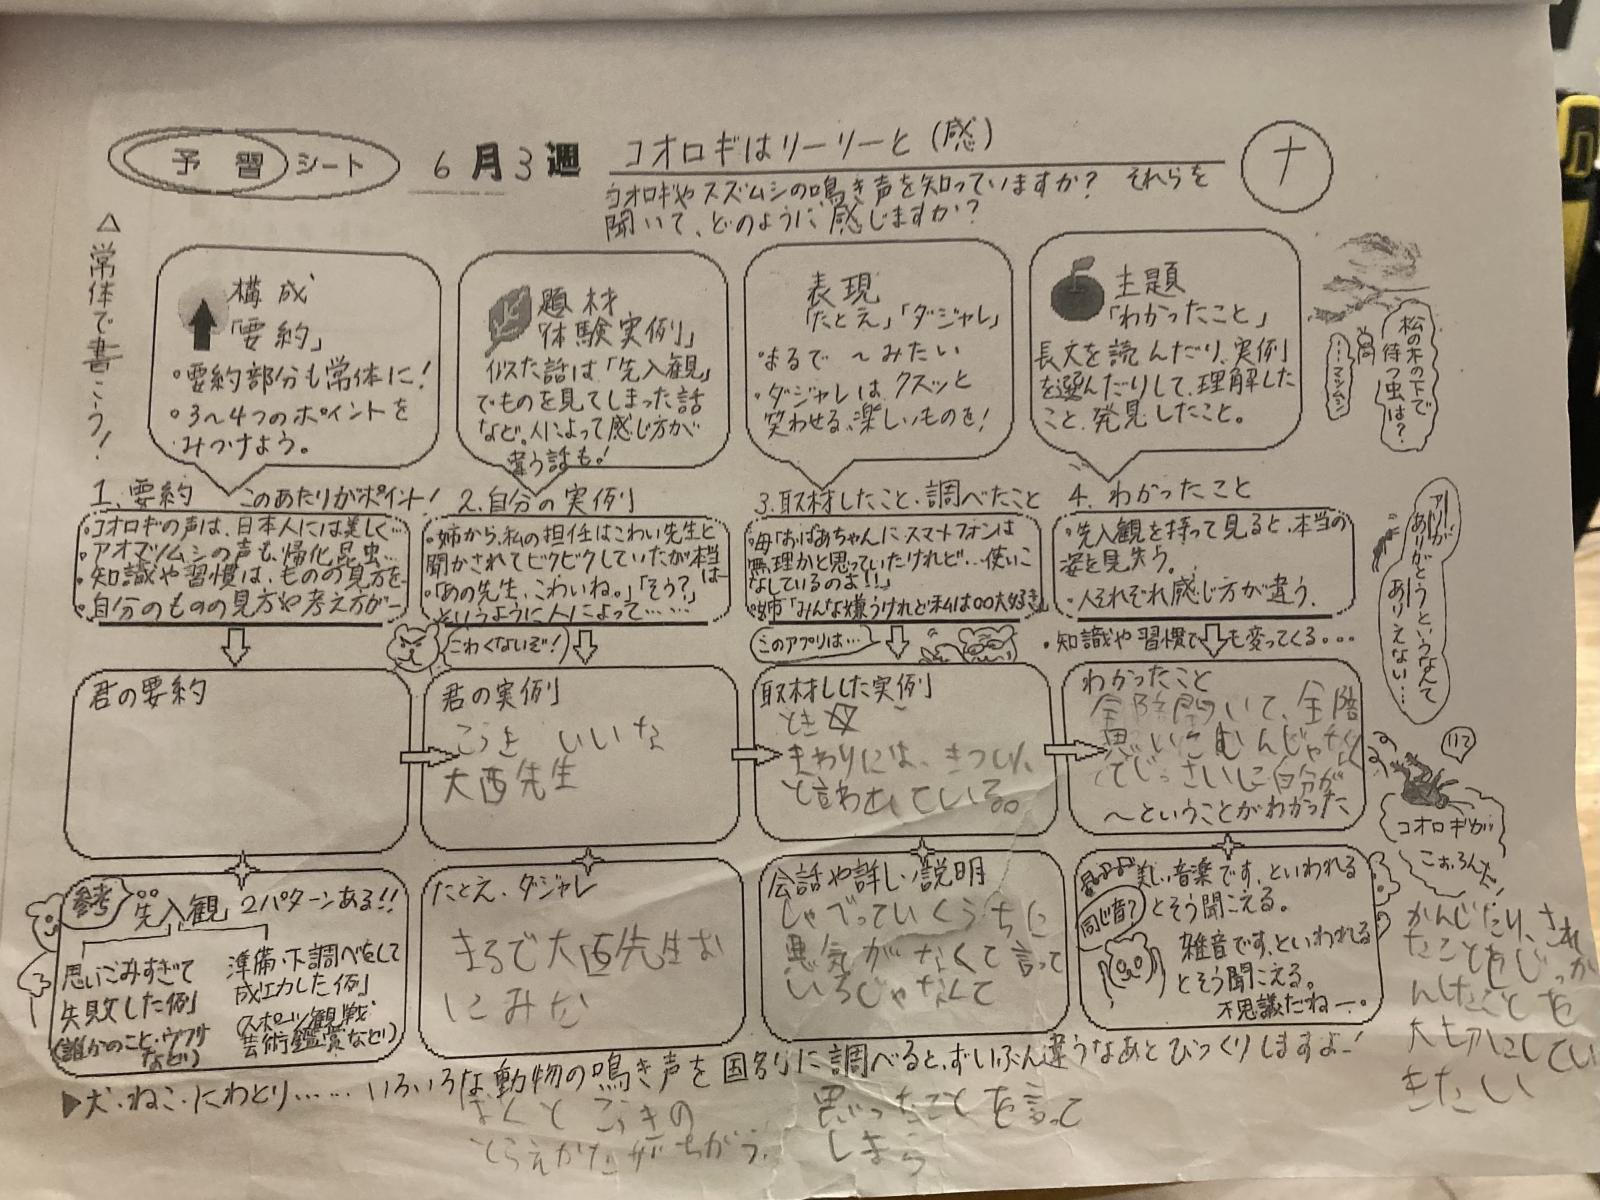 予習シート 6月3週 コオロギはリーリーと(感)
ナ
コオロギやスズムシの鳴き声を知っていますか? それらを
聞いて、どのように感じますか?
△常体で書こう!
構成
「要約」
・要約部分も常体に!
・3〜4つのポイントを
みつけよう。
題材
「体験実例」
似た話は「先入観」
でものを見てしまった話
など。人によって感じ方が
違う話も!
表現
「たとえ」「ダジャレ」
・まるで〜みたい
・ダジャレは、クスッと
笑わせる、楽しいものを!
主題
「わかったこと」
長文を読んだり、実例
を選んだりして、理解した
こと、発見したこと。
松の木の下で
待つ虫は?
…マツムシ
1.要約 このあたりがポイント!
・コオロギの声は、日本人には美しく…
・アオマツムシの声も、帰化昆虫…
・知識や習慣は、ものの見方を
・自分のものの見方や考え方が―
2.自分の実例
・姉から、私の担任はこわい先生と
聞かされてビクビクしていたが本当は
・「あの先生、こわいね。」「そう?」
というように人によって……
3.取材したこと・調べたこと
・母「おばあちゃんにスマートフォンは
無理かと思っていたけれど…使いこ
なしているのよ!!」
・姉「みんな嫌うけれど私は〇〇大好き
4.わかったこと
・先入観を持って見ると、本当の
姿を見失う。
・人それぞれ感じ方が違う。
・知識や習慣でも変ってくる…
こわくないぞ!
このアプリは…
アリが
ありがとうというなんて
ありえない…
君の要約
君の実例
こうき いいな
大西先生
取材した実例
まわりには、きついん
と言われている。
わかったこと
全部聞いて、全部
思いこむんじゃなく
てじっさいに自分が
〜ということがわかった
コオロギが
ころんだ!
参考
先入観 2パターンある!!
思いこみすぎて
失敗した例
(誰かのこと・ウワサ
など)
準備・下調べをして
成功した例
(スポーツ観戦
芸術鑑賞など)
たとえ・ダジャレ
まるで大西先生お
にみな
会話や詳しい説明
しゃべっていくうちに
悪気がなくて言って
いるじゃなくて
美しい音楽です、といわれる
とそう聞こえる。
同じ音で
雑音です、といわれる
とそう聞こえる。
不思議だねー。
かんじたり、された
ことをじっか
んしたことを
大切にしてい
きたい
▶犬・ねこ・にわとり……いろいろな動物の鳴き声を国別に調べると、ずいぶん違うなあとびっくりしますよ!
ぼくとこうきの
とらえかたがちがう。
思ったことを言って
しまう